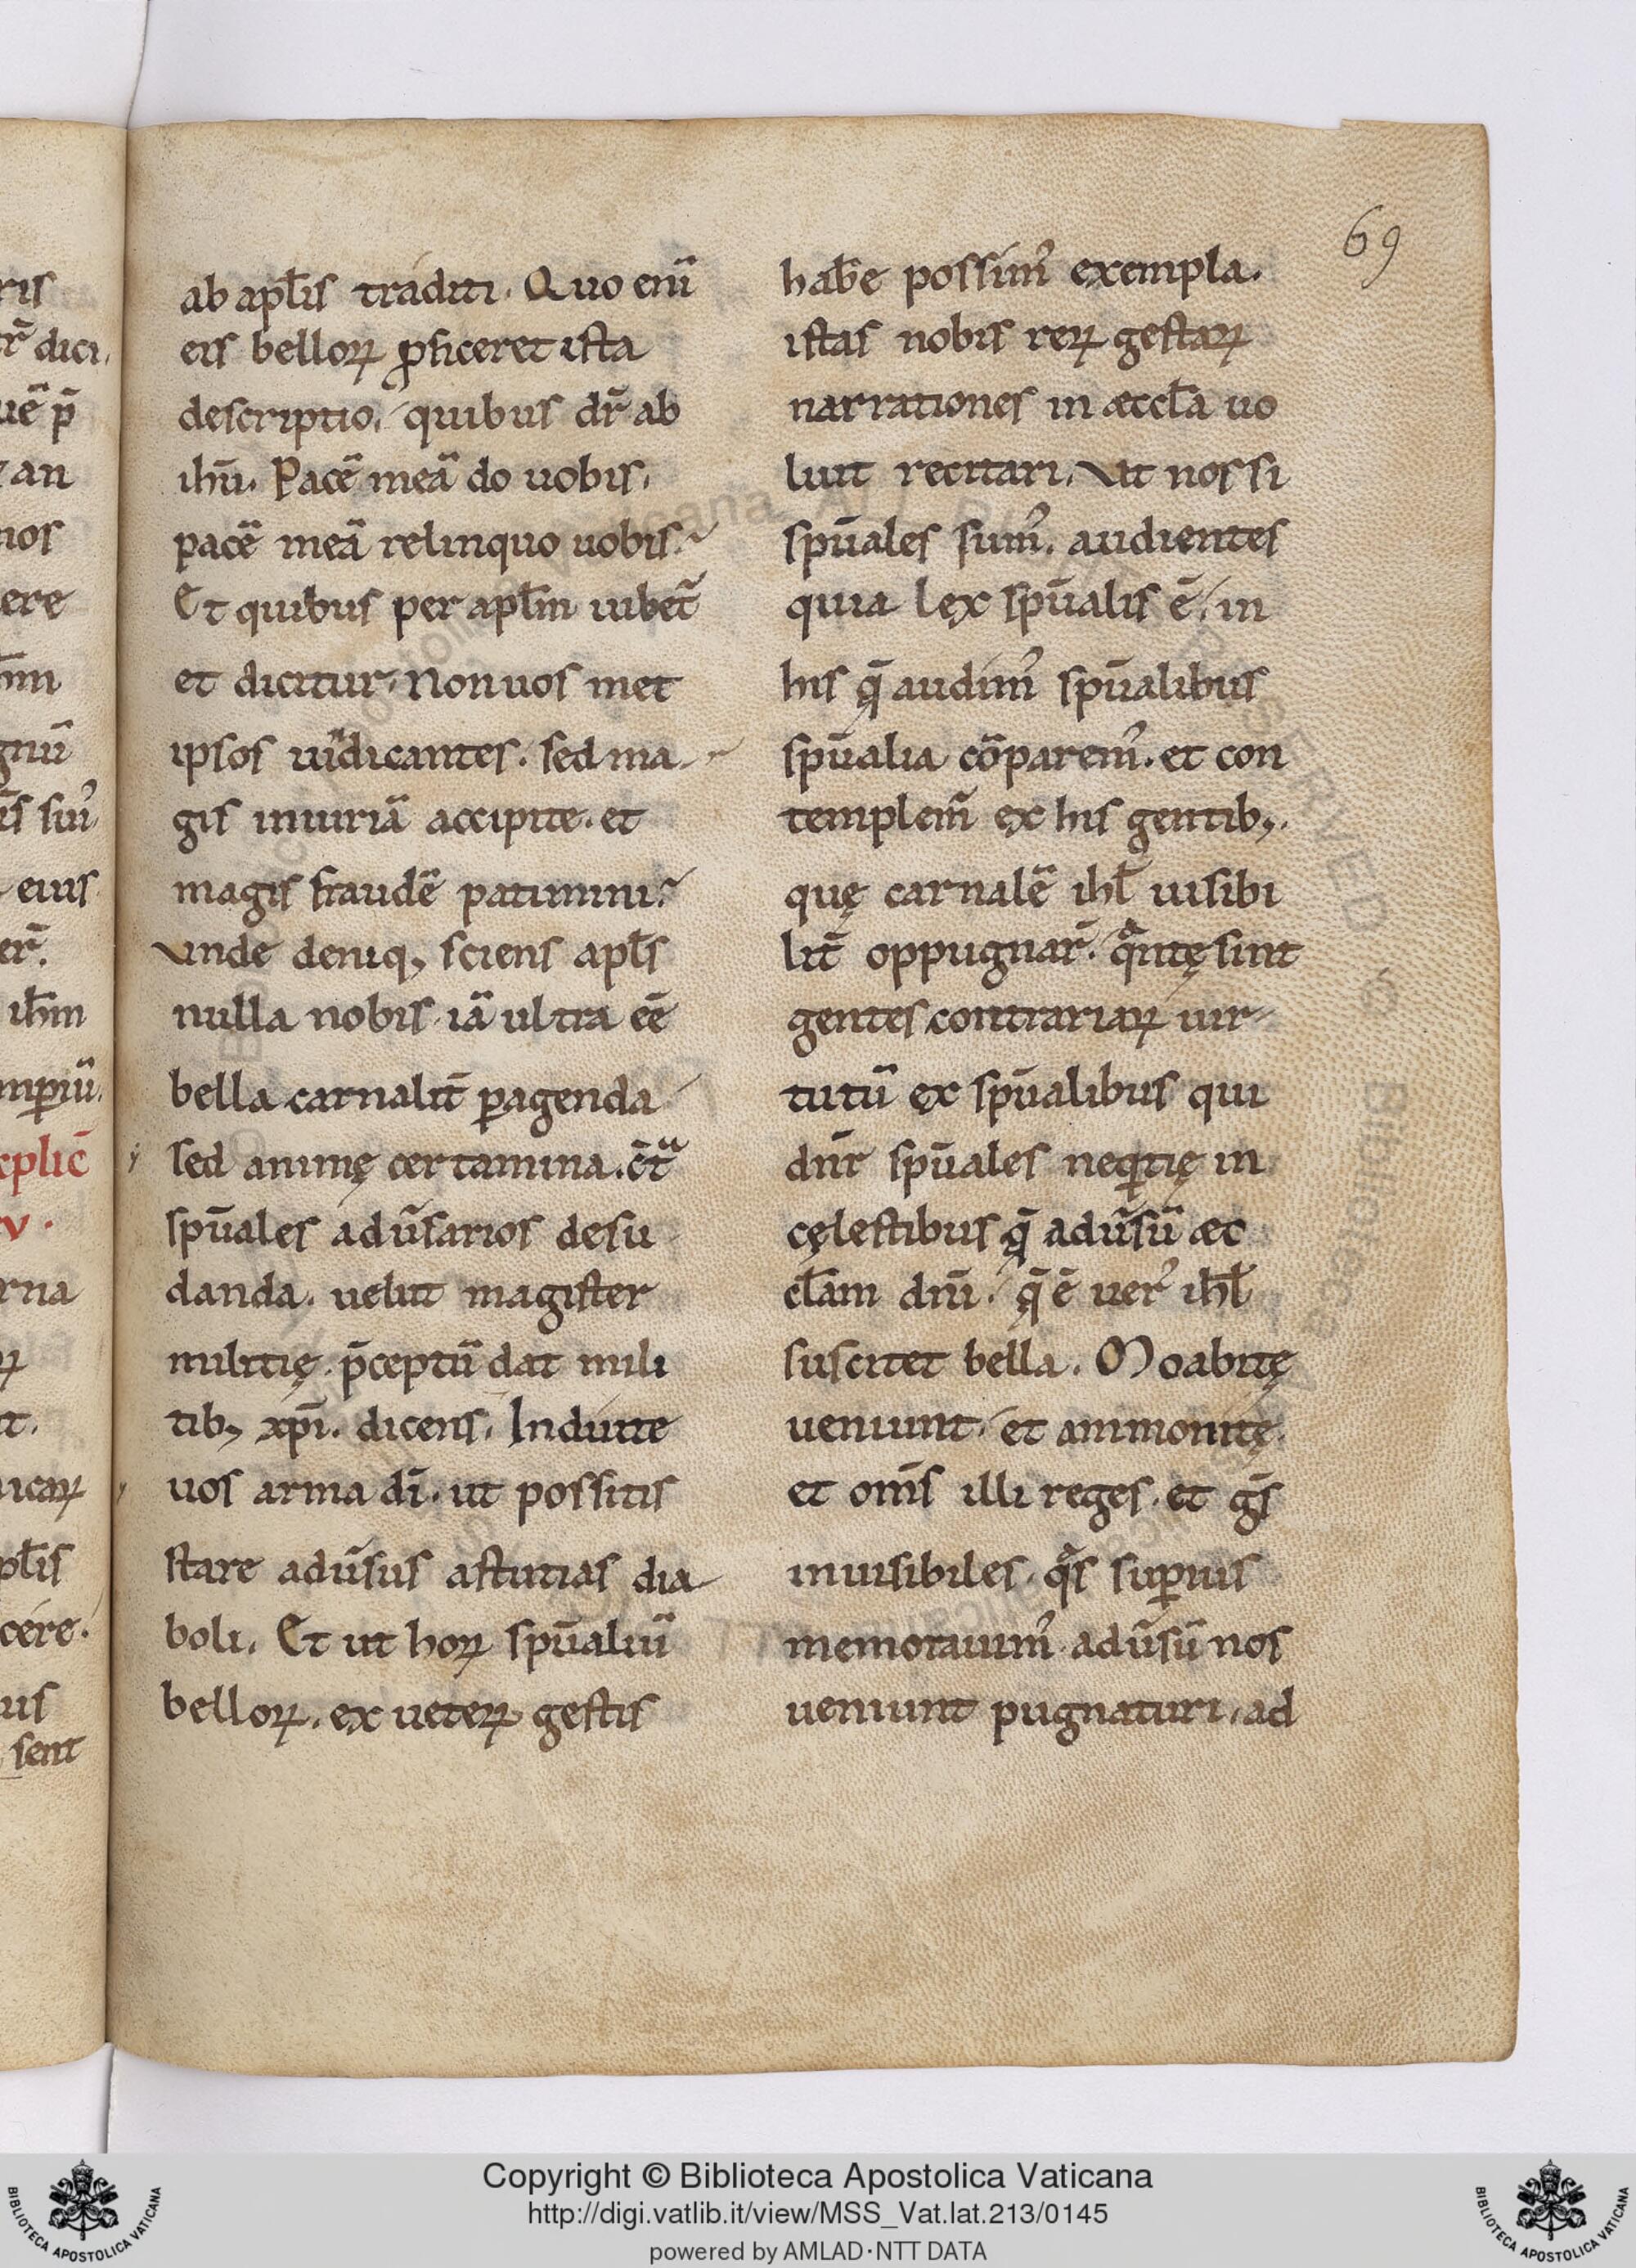 69
ris
r̄ dici.
uē p̄
an
nos
ere
gnū
eius
ihm̄
rna
pl̄is
cere.
us
sent
ab apl̄is traditi. Quo eni̅
eis belloꝝ ꝓficeret ista
descriptio, quibus dr̄ ab
ihū. Pacē meā do uobis,
pacē meā relinquo uobis?
Et quibus per apl̄m iubet̄
et dicitur, Non uos met
ipsos uīdicantes. sed ma-
gis iniuriā accipite. et
magis fraudē patimini?
Vnde deniq; sciens apl̄s
nulla nobis iā ultra eē
bella carnalit̄ ꝑagenda
sed animę certamina. c̄tͣ
spūales adūsarios desu
danda. uelut magister
militię. p̄ceptū dat mili
tib; xp̄i. dicens, Induite
uos arma dī. ut possitis
stare adūsus astutias dia-
boli. Et ut hoꝝ spūaliū
belloꝝ. ex ueteꝝ gestis
hab̄e possim᾽ exempla.
istas nobis reꝝ gestaꝝ
narrationes in æccl̄a uo
luit recitari, Vt nos si
spūales sum᾽. audientes
quia lex spūalis ē, in
his q̄ audim᾽ spūalibus
spūalia cōparem᾽. et con
templem̄ ex his gentib;.
quę carnalē ihl̄ uisibi
lit̄ oppugnar̄. qͣntę sint
gentes contrariaꝝ uir-
tutū ex spūalibus qui
dnr̄ spūales neq̇tię in
cęlestibus q̄ adūsū æc
cl̄am dnī. q̄ ē uer᾽ ihl̄
suscitet bella. Moabitę
ueniunt, et ammonitę.
et om̄s illi reges. et gs̄
inuisibiles. qͦs suꝑius
memorauim᾽ adūsū nos
ueniunt pugnaturi, ad
Copyright © Biblioteca Apostolica Vaticana
http://digi.vatlib.it/view/MSS_Vat.lat.213/0145
powered by AMLAD·NTT DATA
BIBLIOTECA APOSTOLICA VATICANA
BIBLIOTECA APOSTOLICA VATICANA